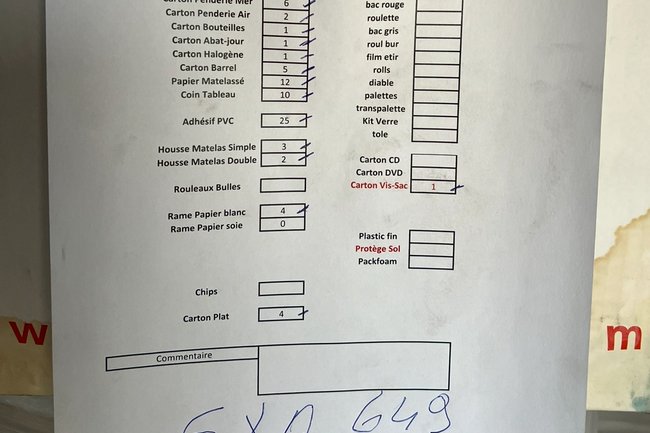 Carton Penderie Mer 6
Carton Penderie Air 2
Carton Bouteilles 1
Carton Abat-jour 1
Carton Halogène 1
Carton Barrel 5
Papier Matelassé 12
Coin Tableau 10
Adhésif PVC 25
Housse Matelas Simple 3
Housse Matelas Double 2
Rouleaux Bulles
Rame Papier blanc 4
Rame Papier soie 0
Chips
Carton Plat 4
bac rouge
roulette
bac gris
roul bur
film etir
rolls
diable
palettes
transpalette
Kit Verre
tole
Carton CD
Carton DVD
Carton Vis-Sac 1
Plastic fin
Protège Sol
Packfoam
Commentaire
649
w
m